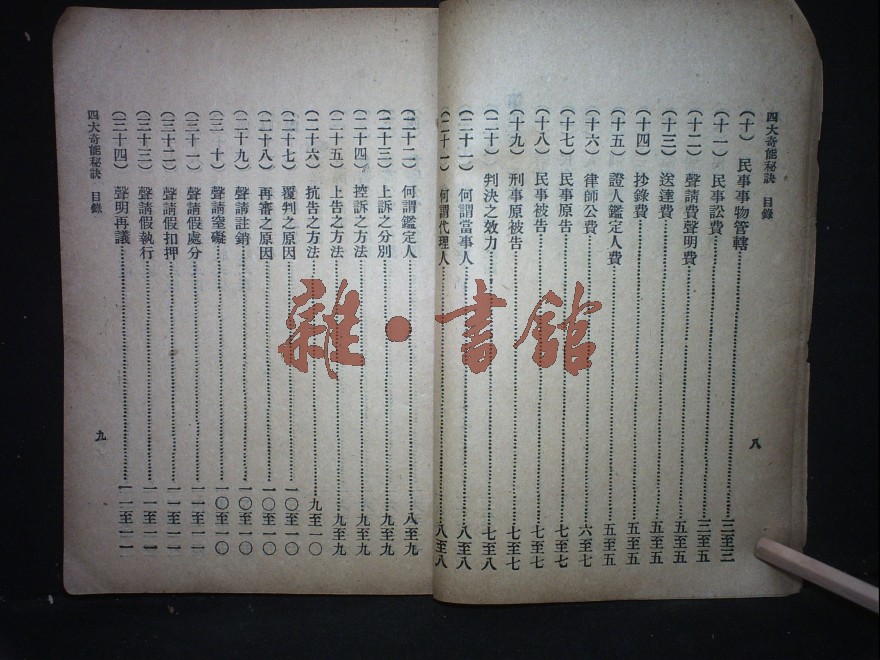 四大奇能秘訣　目錄
(十)　民事事物管轄……三至三
(十一)　民事訟費……三至五
(十二)　聲請費聲明費……五至五
(十三)　送達費……五至五
(十四)　抄錄費……五至五
(十五)　證人鑑定人費……五至五
(十六)　律師公費……六至七
(十七)　民事原告……七至七
(十八)　民事被告……七至七
(十九)　刑事原被告……七至七
(二十)　判決之效力……七至八
(二十一)　何謂當事人……八至八
(二十一)　何謂代理人……八至八
八
(二十二)　何謂鑑定人……八至九
(二十三)　上訴之分別……九至九
(二十四)　控訴之方法……九至九
(二十五)　上告之方法……九至九
(二十六)　抗告之方法……九至一〇
(二十七)　覆判之原因……一〇至一〇
(二十八)　再審之原因……一〇至一〇
(二十九)　聲請註銷……一〇至一〇
(三　十)　聲請窒礙……一〇至一〇
(三十一)　聲請假處分……一一至一一
(三十二)　聲請假扣押……一一至一一
(三十三)　聲請假執行……一一至一一
(三十四)　聲明再議……一一至一一
四大奇能秘訣　目錄
九
雜·書館